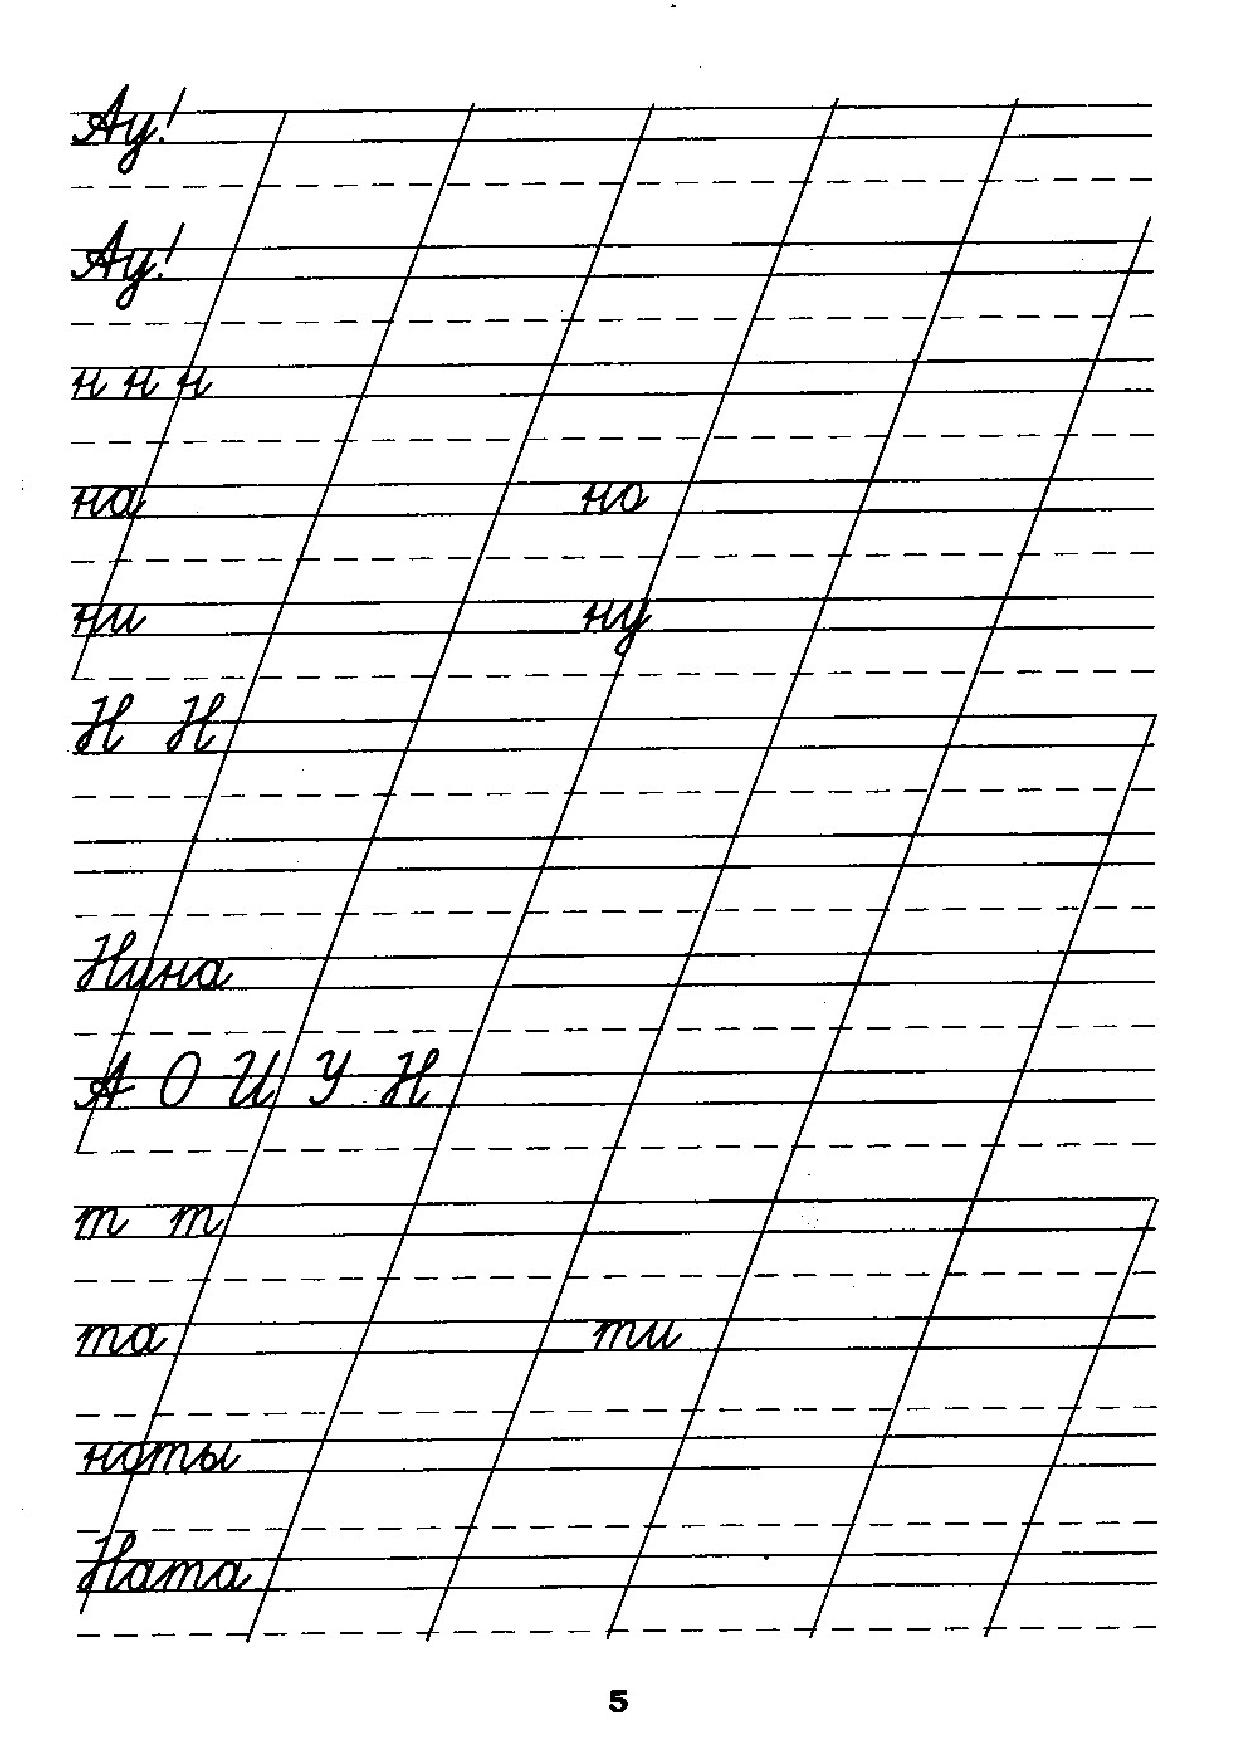 Ау!
Ау!
н н н
на но
ни ну
Н Н
Нина
А О И У Н
т т
та ти
ноты
Ната
5